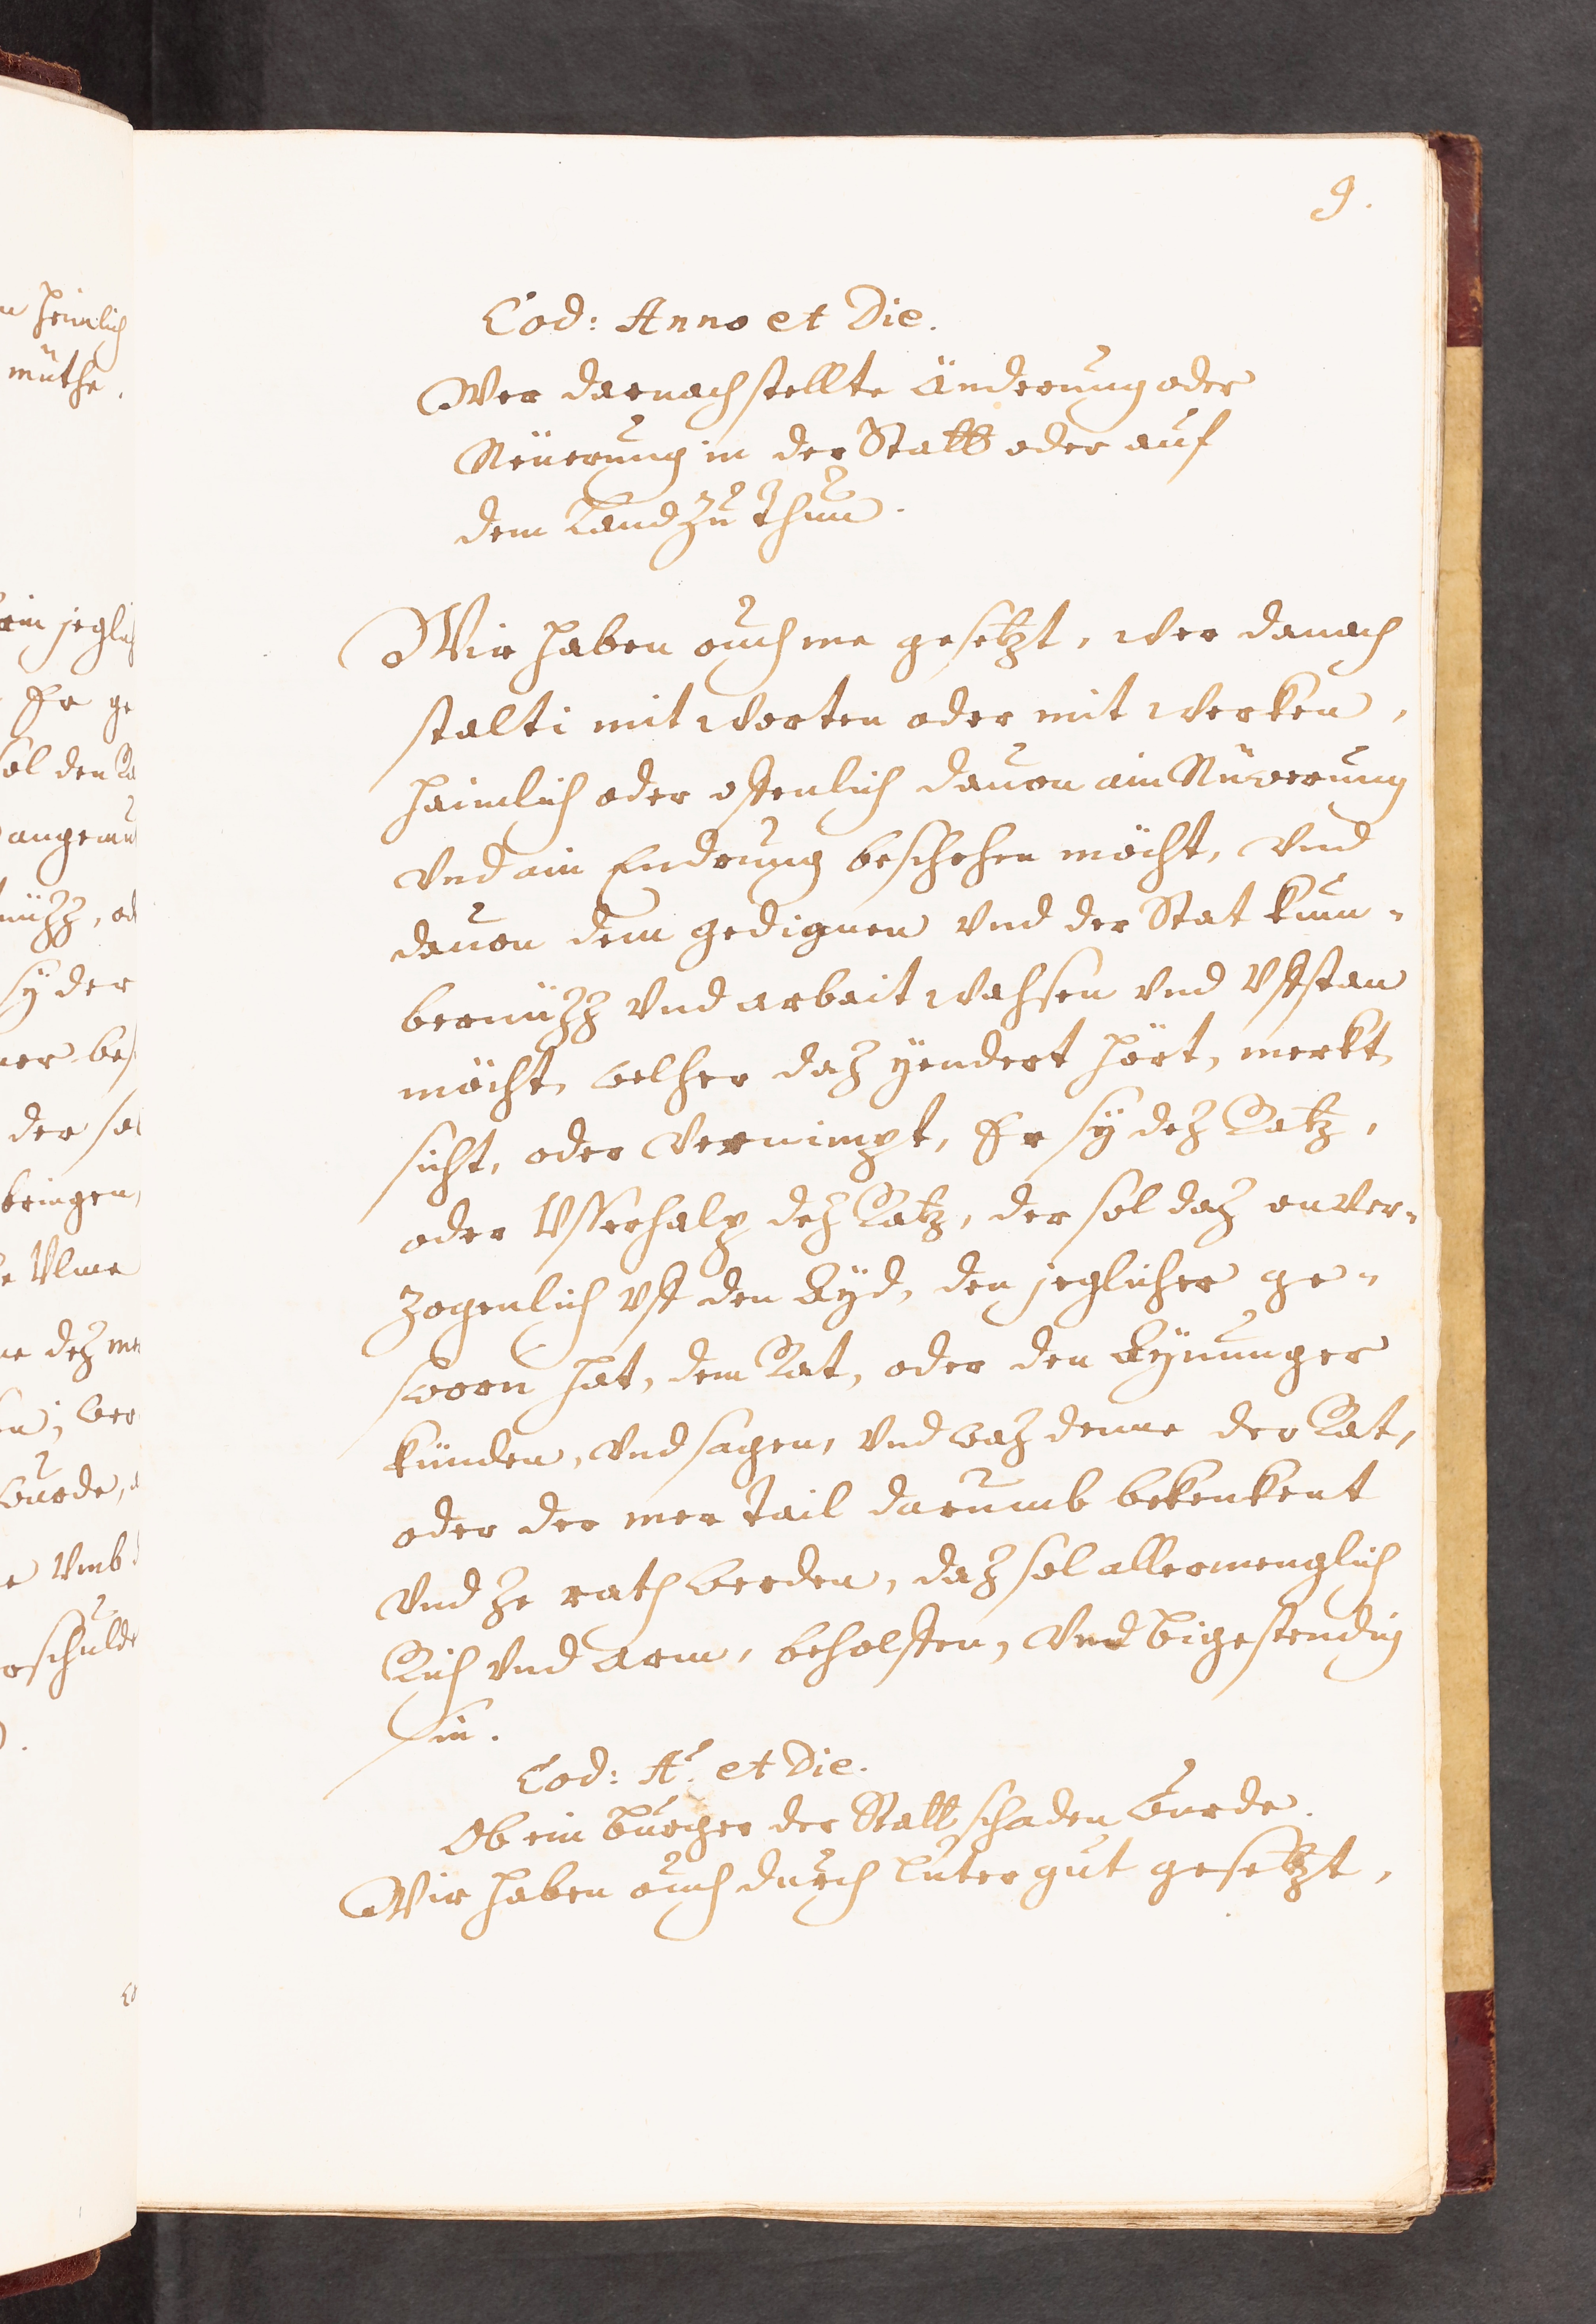 9.
Eod: Anno et Die.
Wer darnach stellte Änderung oder
Neüerung in der Statt oder auf
dem Land zu Thun.
Wir haben ouch me gesetzt, wer danach
stalti mit worten oder mit werken,
haimlich oder offenlich dauon ain Nüwerung
vnd ain Endrung beschehen möcht, vnd
dauon dem gedignen vnd der Stat kum-
bernüzz vnd arbait wahsen vnd vfstan
möcht, welher daz yendert hört, merkt,
sicht, oder vernimpt, Er sy dez Ratz,
oder Vsserhalp dez Ratz, der sol daz onver-
zogenlich vff den Eyd, den jeglicher ge-
sworn hat, dem Rat, oder den Eynunger
künden, vnd sagen, vnd waz denne der Rat,
oder der mer Tail darumb bekenkent
vnd ze rath werden, daz sol allermenglich
Rich vnd arm, beholffen, vnd bigestendig
sin.
Eod: Aº. et Die.
Ob ein burger der Statt schaden wurde.
Wir haben ouch durch luter gut gesetzt,
n heimlich
müthe.
ein jeglich
Er ge
sol den Ra
angemu
nüzz, od
sy der
ner bes
der sol
bringen,
e Vlme
ne dez me
wer
wurde,
e vmb
rschulde